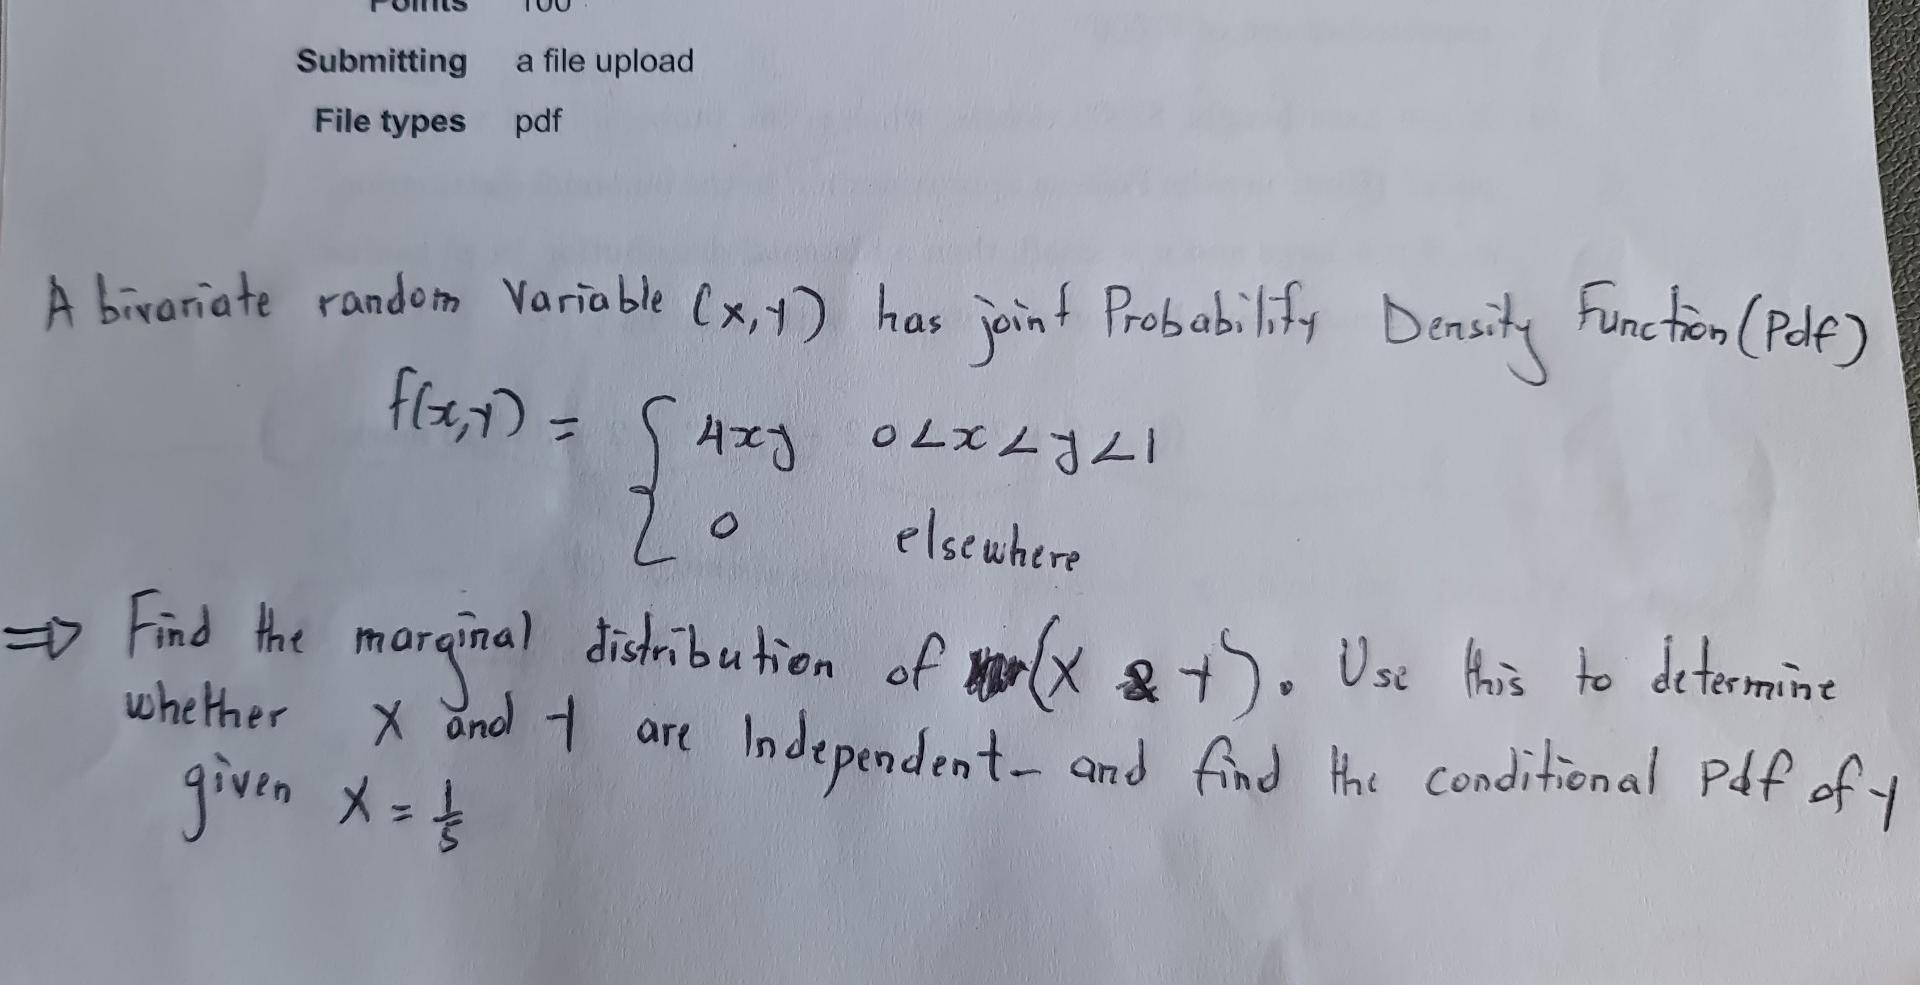 Points 100
Submitting a file upload
File types pdf
A bivariate random Variable (x,y) has joint Probability Density Function (Pdf)
f(x,y) = { 4xy 0<x<y<1
0 elsewhere
⇒ Find the marginal distribution of (X & Y). Use this to determine
whether X and Y are Independent- and find the conditional Pdf of Y
given X = 1/5